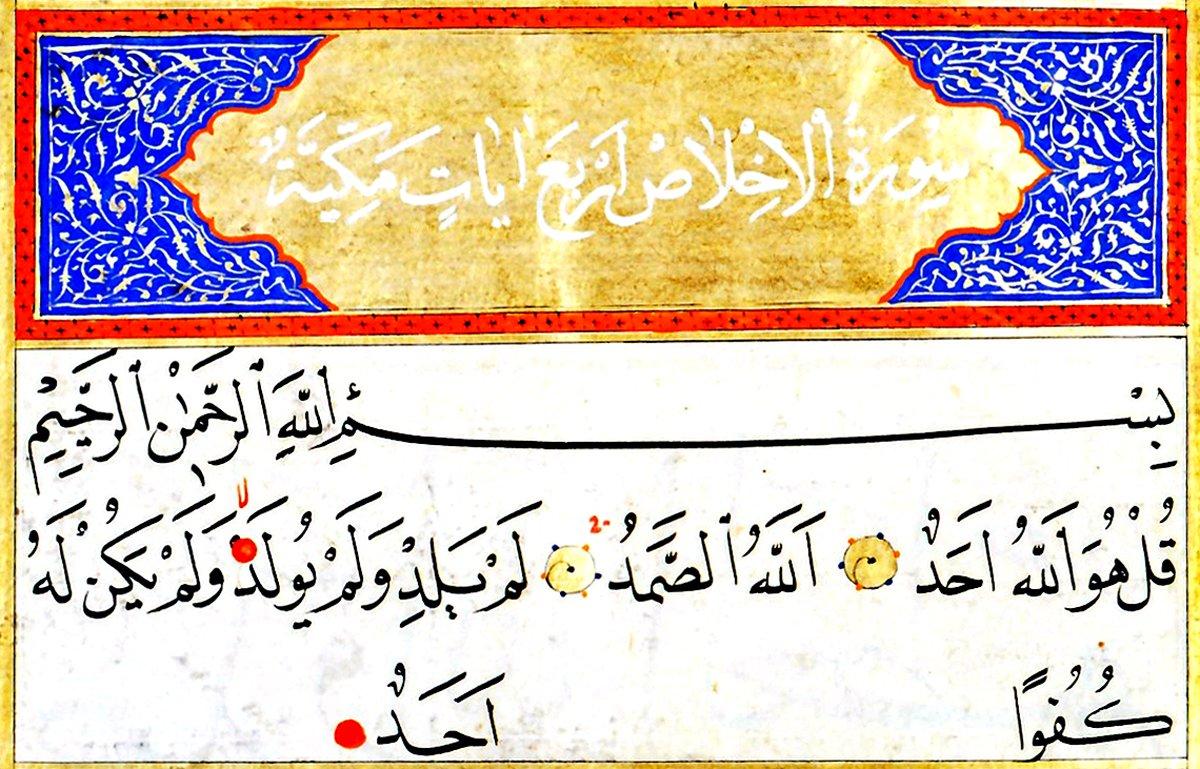 سُورَةُ الْاِخْلَاصْ اَرْبَعَ اٰيَاتٍ مَكِّيَّةٌ
بِسْمِ اللّٰهِ الرَّحْمٰنِ الرَّحِيمِ
قُلْ هُوَ اللّٰهُ اَحَدٌ اَللّٰهُ الصَّمَدُ لَمْ يَلِدْ وَلَمْ يُولَدْ وَلَمْ يَكُنْ لَهُ
كُفُوًا اَحَدٌ